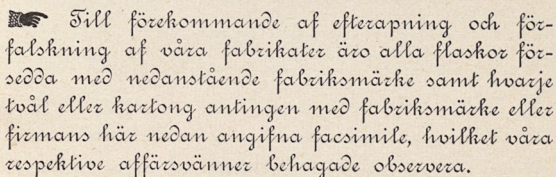 ☛ Till förekommande af efterapning och för-
falskning af våra fabrikater äro alla flaskor för-
sedda med nedanstående fabriksmärke samt hvarje
tvål eller kartong antingen med fabriksmärke eller
firmans här nedan angifna facsimile, hvilket våra
respektive affärsvänner behagade observera.